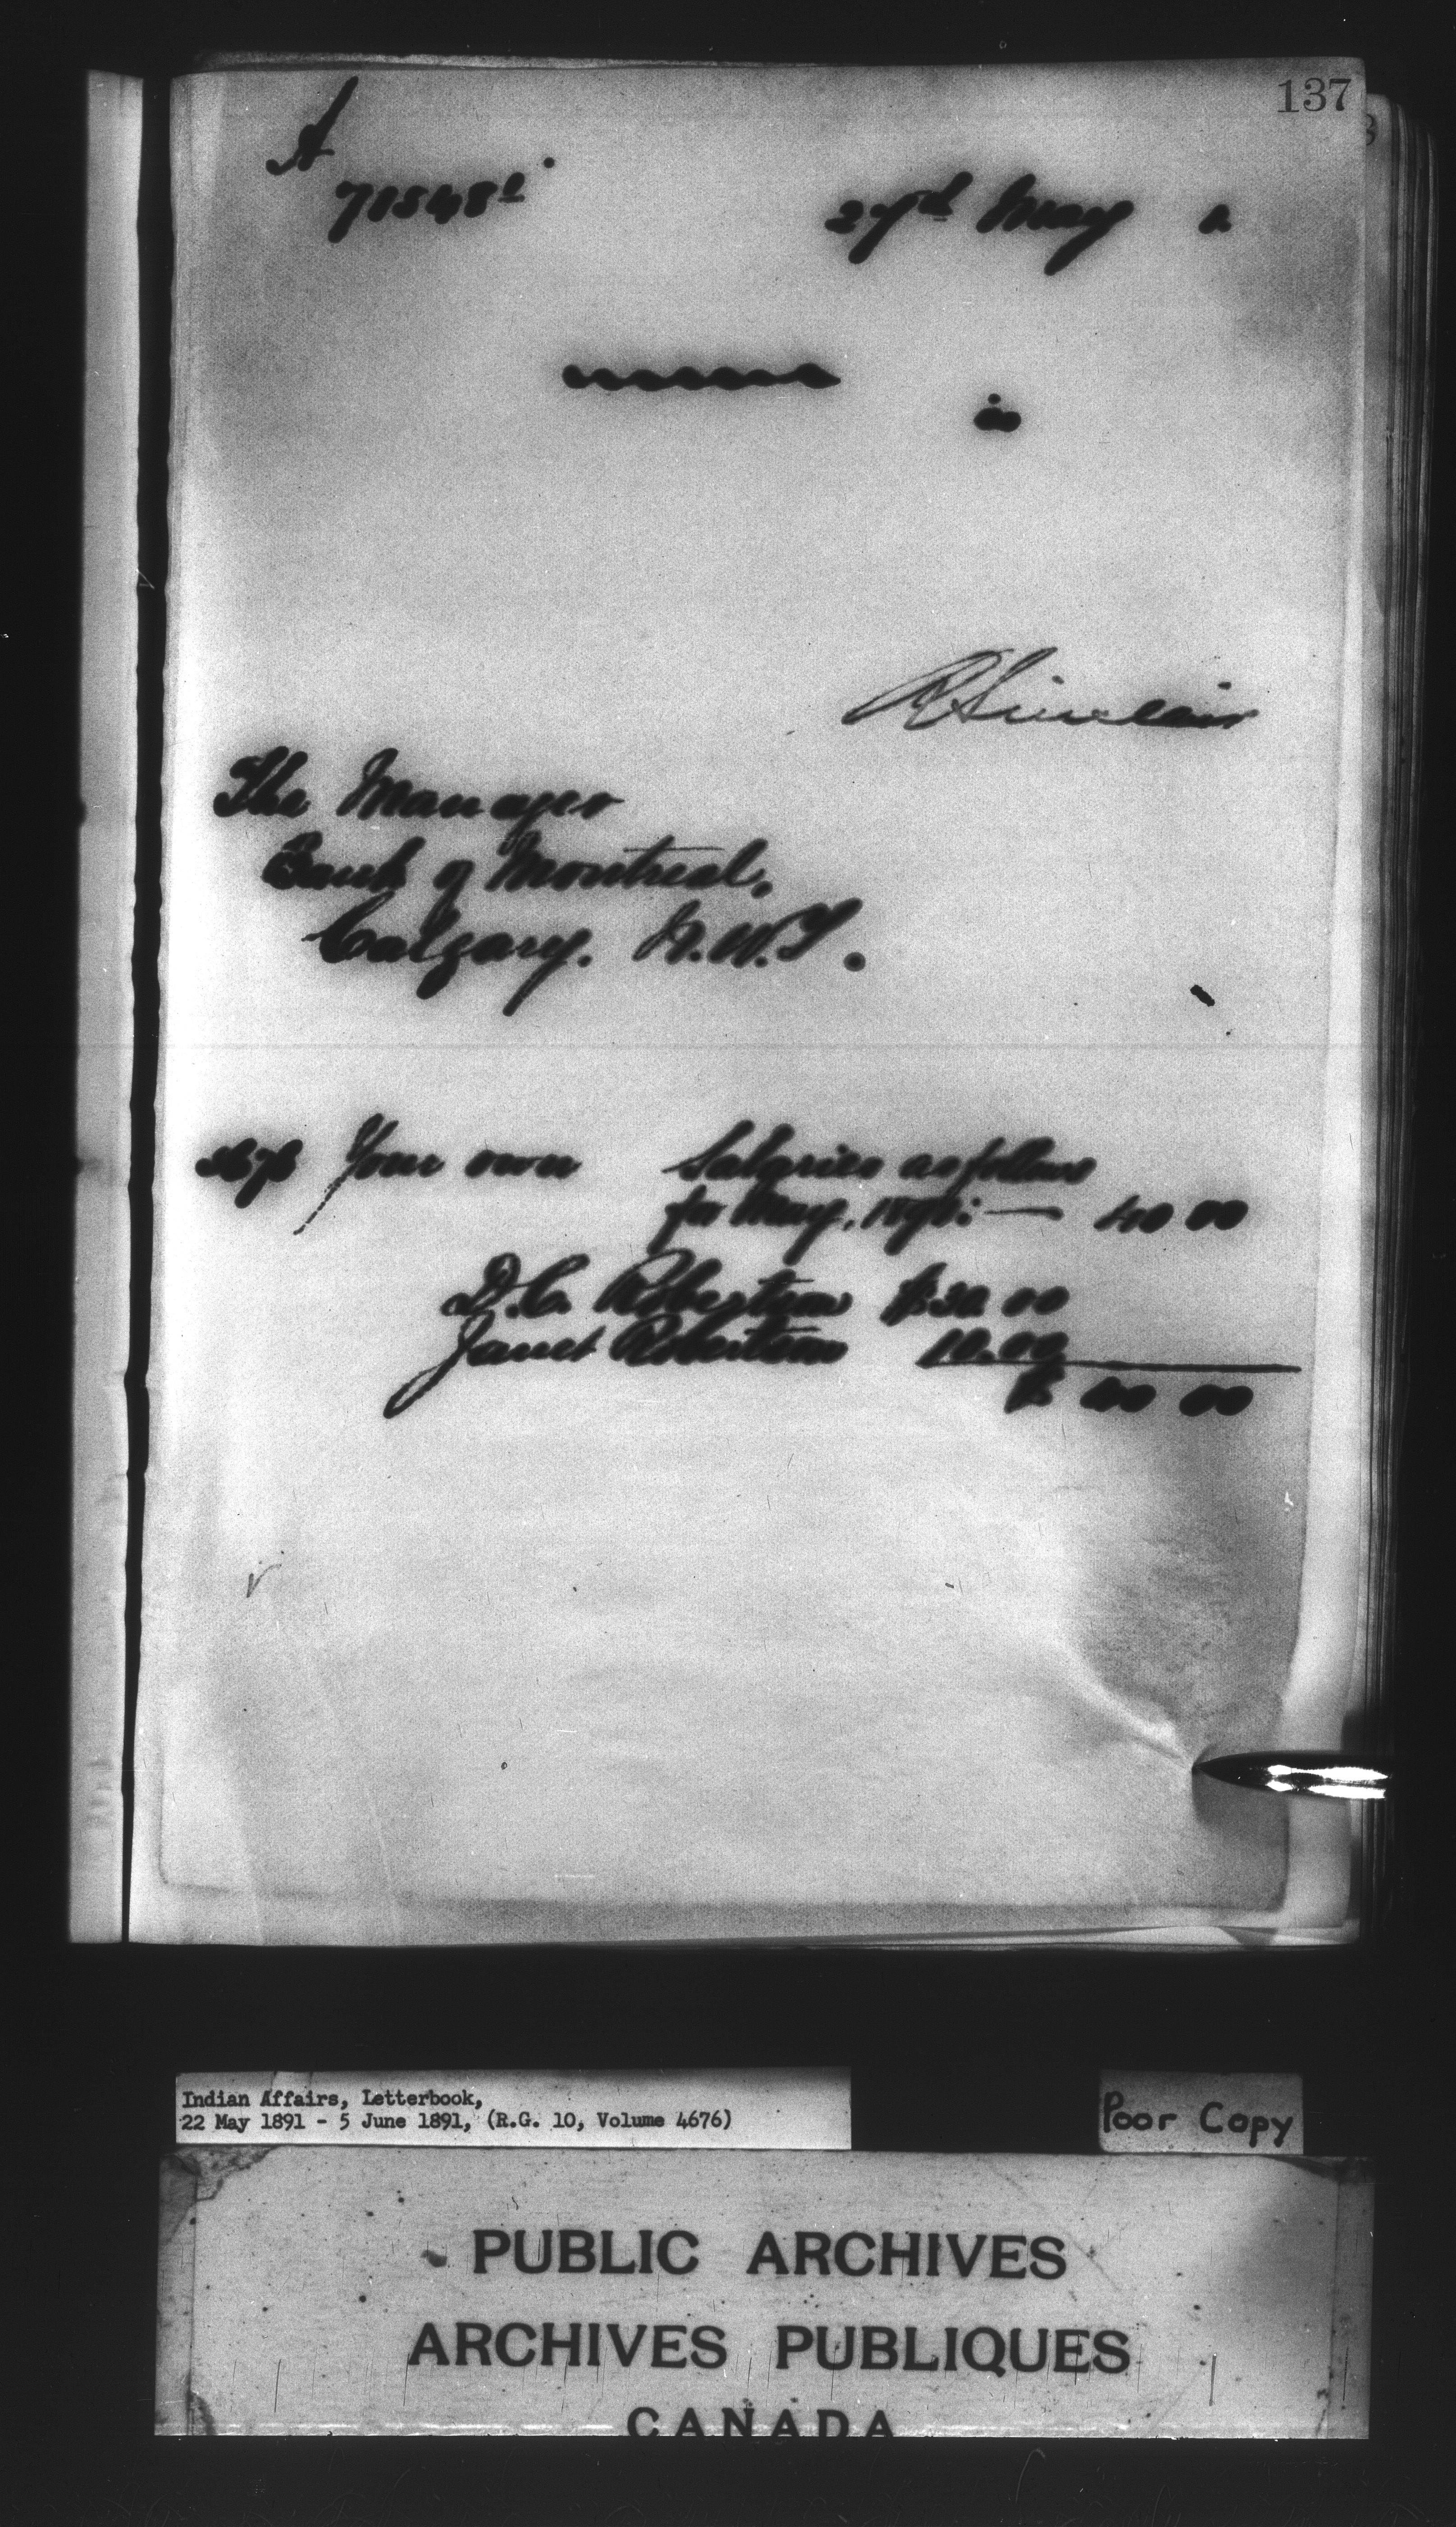 137
A
71548
27th May
R Sinclair
The Manager
Bank of Montreal,
Calgary. N.W.T.
Your own Salaries as follows
for May, 1891: — 40 00
D.C. Robertson $30.00
Janet Robertson 10.00
$ 40 00
Indian Affairs, Letterbook,
22 May 1891 - 5 June 1891, (R.G. 10, Volume 4676)
Poor Copy
PUBLIC ARCHIVES
ARCHIVES PUBLIQUES
CANADA